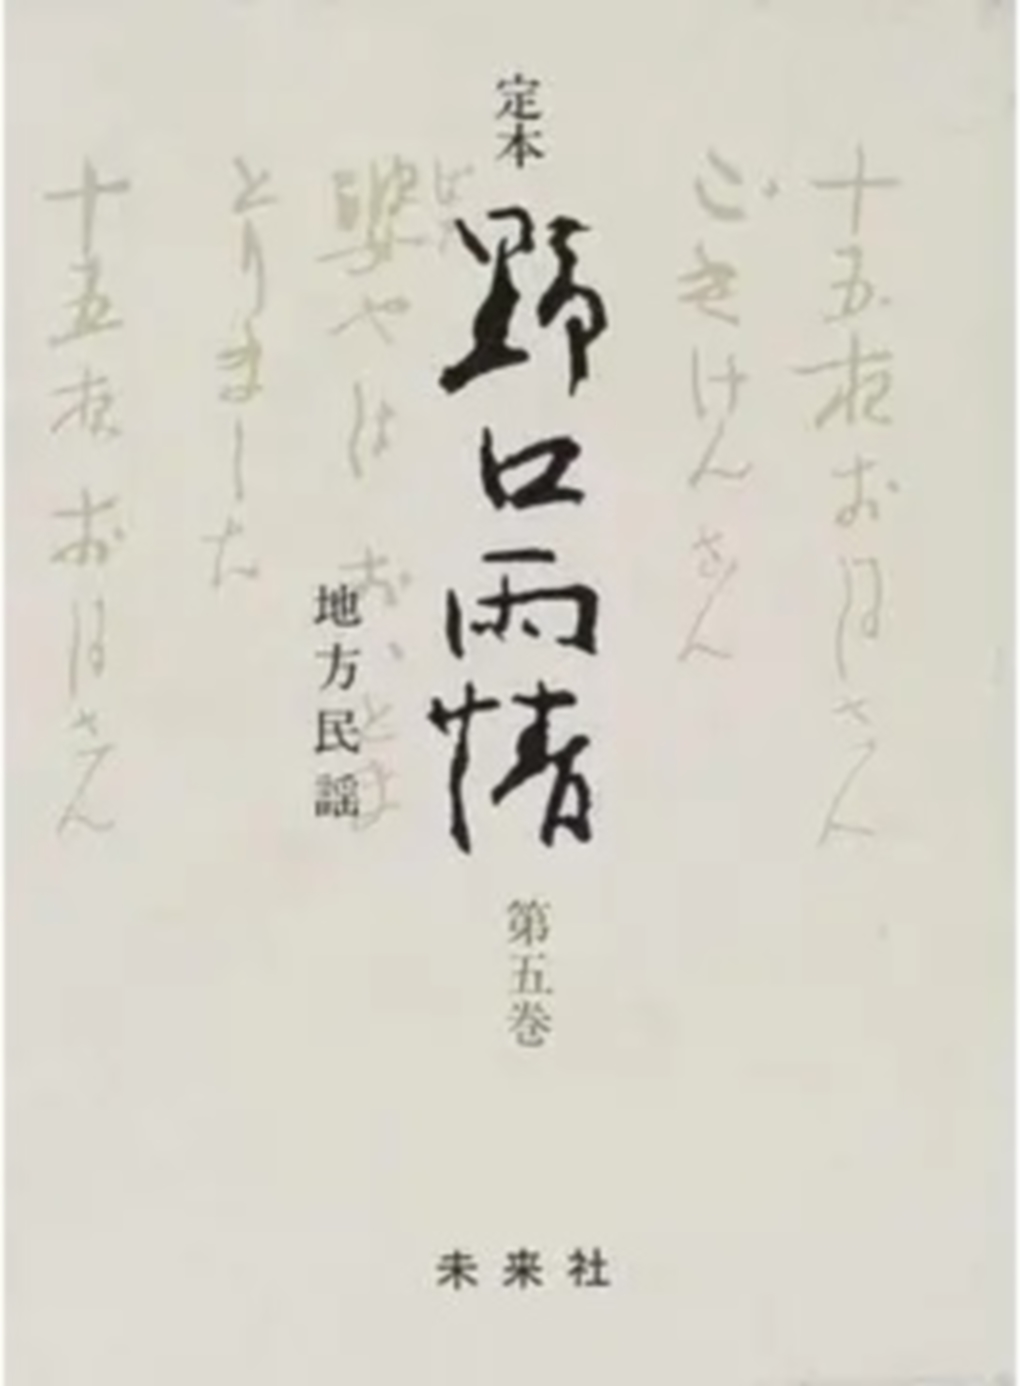 定本
野口雨情
第五巻
地方民謡
十五夜お月さん
ごきけんさん
婆やは おいとま
とりました
十五夜お月さん
未来社